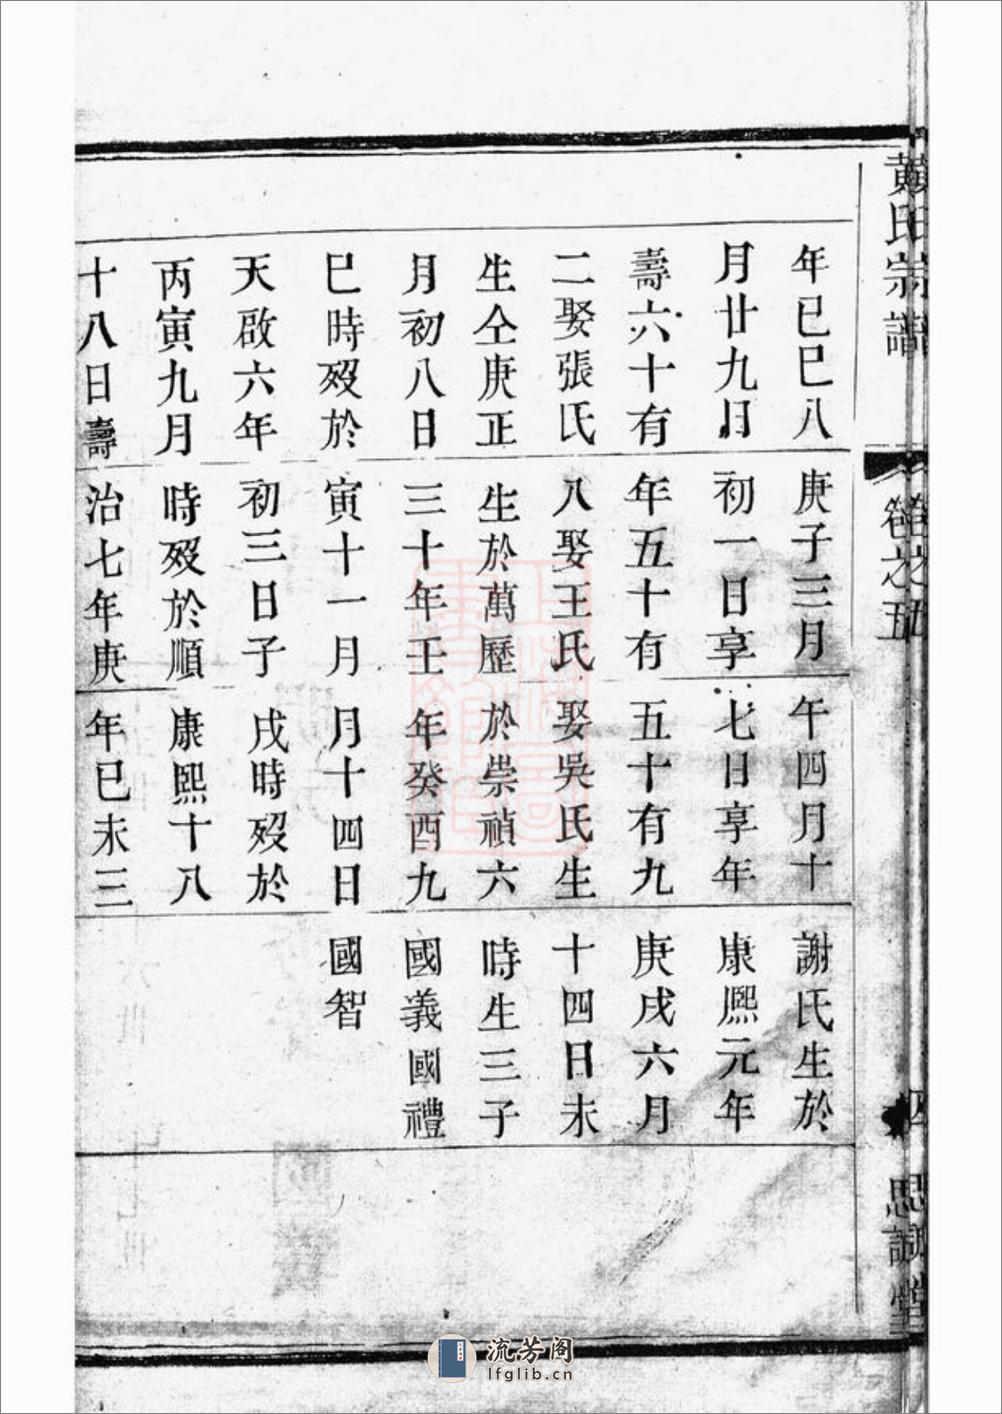 黄氏宗譜
卷之五
四
思誠堂
年已巳八
月廿九日
壽六十有
二娶張氏
生仝庚正
月初八日
巳時歿於
天啟六年
丙寅九月
十八日壽
庚子三月
初一日享
年五十有
八娶王氏
生於萬歷
三十年壬
寅十一月
初三日子
時歿於順
治七年庚
午四月十
七日享年
五十有九
娶吳氏生
於崇禎六
年癸酉九
月十四日
戌時歿於
康熙十八
年巳未三
謝氏生於
康熙元年
庚戌六月
十四日未
時生三子
國義國禮
國智
流芳阁
lfglib.cn